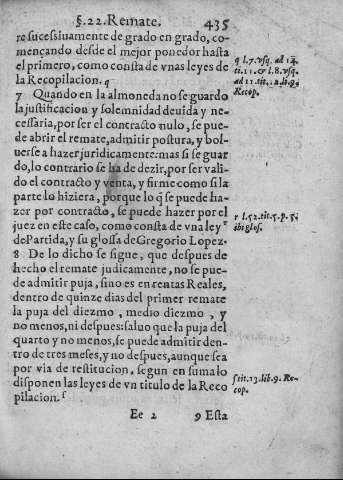 §.22. Remate. 435
re sucessiuamente de grado en grado, co-
mençando desde el mejor ponedor hasta
el primero, como consta de vnas leyes de
la Recopilacion. q
q l.7.vsq. ad 14.
ti.11.& l.8.vsq.
ad 11.tit.12.li.9.
Recop.
7 Quando en la almoneda no se guardo
la justificacion y solemnidad deuida y ne-
cessaria, por ser el contracto nulo, se pue-
de abrir el remate, admitir postura, y bol-
uerse a hazer juridicamente: mas si se guar
do, lo contrario se ha de dezir, por ser vali-
do el contracto y venta, y firme como si la
parte lo hiziera, porque lo q̃ se puede ha-
zer por contracto, se puede hazer por el
juez en este caso, como consta de vna ley r
de Partida, y su glossa de Gregorio Lopez.
r l.52.tit.5.p.5.
ibi glos.
8 De lo dicho se sigue, que despues de
hecho el remate judicamente, no se pue-
de admitir puja, sino es en rentas Reales,
dentro de quinze dias del primer remate
la puja del diezmo, medio diezmo, y
no menos, ni despues: saluo que la puja del
quarto y no menos, se puede admitir den-
tro de tres meses, y no despues, aunque sea
por via de restitucion, segun en suma lo
disponen las leyes de vn titulo de la Reco
pilacion. ſ
ſ tit.13.lib.9. Re-
cop.
Ee 2 9 Esta